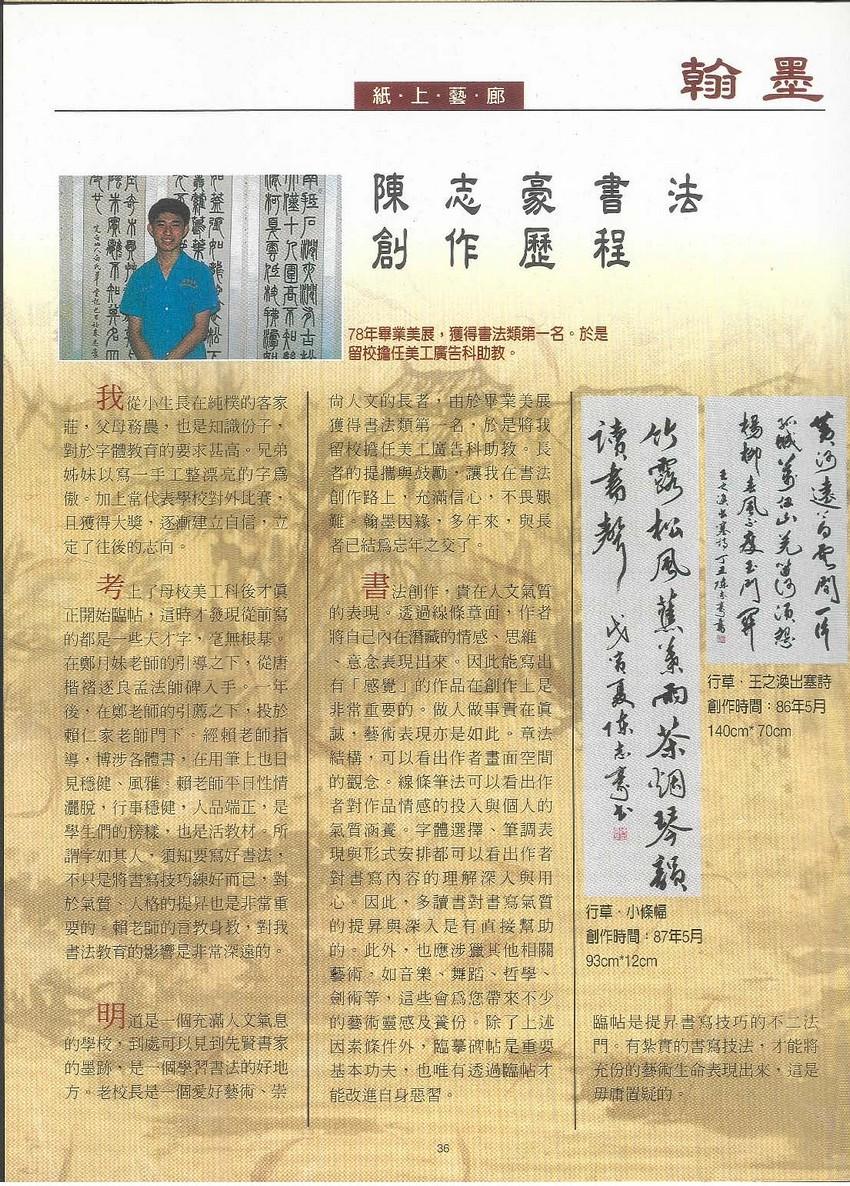 翰墨
紙·上·藝·廊
陳志豪書法
創作歷程
78年畢業美展，獲得書法類第一名。於是
留校擔任美工廣告科助教。
我從小生長在純樸的客家
莊，父母務農，也是知識份子，
對於字體教育的要求甚高。兄弟
姊妹以寫一手工整漂亮的字爲
傲。加上常代表學校對外比賽，
且獲得大獎，逐漸建立自信，立
定了往後的志向。
考上了母校美工科後才真
正開始臨帖，這時才發現從前寫
的都是一些天才字，毫無根基。
在鄭月妹老師的引導之下，從唐
楷褚遂良孟法師碑入手。一年
後，在鄭老師的引薦之下，投於
賴仁家老師門下。經賴老師指
導，博涉各體書，在用筆上也日
見穩健、風雅。賴老師平日性情
灑脫，行事穩健，人品端正，是
學生們的榜樣，也是活教材。所
謂字如其人，須知要寫好書法，
不只是將書寫技巧練好而已，對
於氣質、人格的提昇也是非常重
要的。賴老師的言教身教，對我
書法教育的影響是非常深遠的。
明道是一個充滿人文氣息
的學校，到處可以見到先賢書家
的墨跡、是一個學習書法的好地
方。老校長是一個愛好藝術、崇
尚人文的長者，由於畢業美展
獲得書法類第一名，於是將我
留校擔任美工廣告科助教。長
者的提攜與鼓勵，讓我在書法
創作路上，充滿信心，不畏艱
難。翰墨因緣，多年來，與長
者已結爲忘年之交了。
書法創作，貴在人文氣質
的表現。透過線條章面，作者
將自己內在潛藏的情感、思維
、意念表現出來。因此能寫出
有「感覺」的作品在創作上是
非常重要的。做人做事貴在真
誠，藝術表現亦是如此。章法
結構，可以看出作者畫面空間
的觀念。線條筆法可以看出作
者對作品情感的投入與個人的
氣質涵養。字體選擇、筆調表
現與形式安排都可以看出作者
對書寫內容的理解深入與用
心。因此，多讀書對書寫氣質
的提昇與深入是有直接幫助
的。此外，也應涉獵其他相關
藝術，如音樂、舞蹈、哲學、
劍術等，這些會爲您帶來不少
的藝術靈感及養份。除了上述
因素條件外，臨摹碑帖是重要
基本功夫，也唯有透過臨帖才
能改進自身惡習。
竹露松風蕉葉雨茶烟琴韻
讀書聲
戊寅夏陳志豪書
行草·小條幅
創作時間：87年5月
93cm*12cm
黃河遠上白雲間一片
孤城萬仞山羌笛何須怨
楊柳春風不度玉門關
王之渙出塞詩丁丑陳志豪書
行草·王之渙出塞詩
創作時間：86年5月
140cm*70cm
臨帖是提昇書寫技巧的不二法
門。有紮實的書寫技法，才能將
充份的藝術生命表現出來，這是
毋庸置疑的。
36